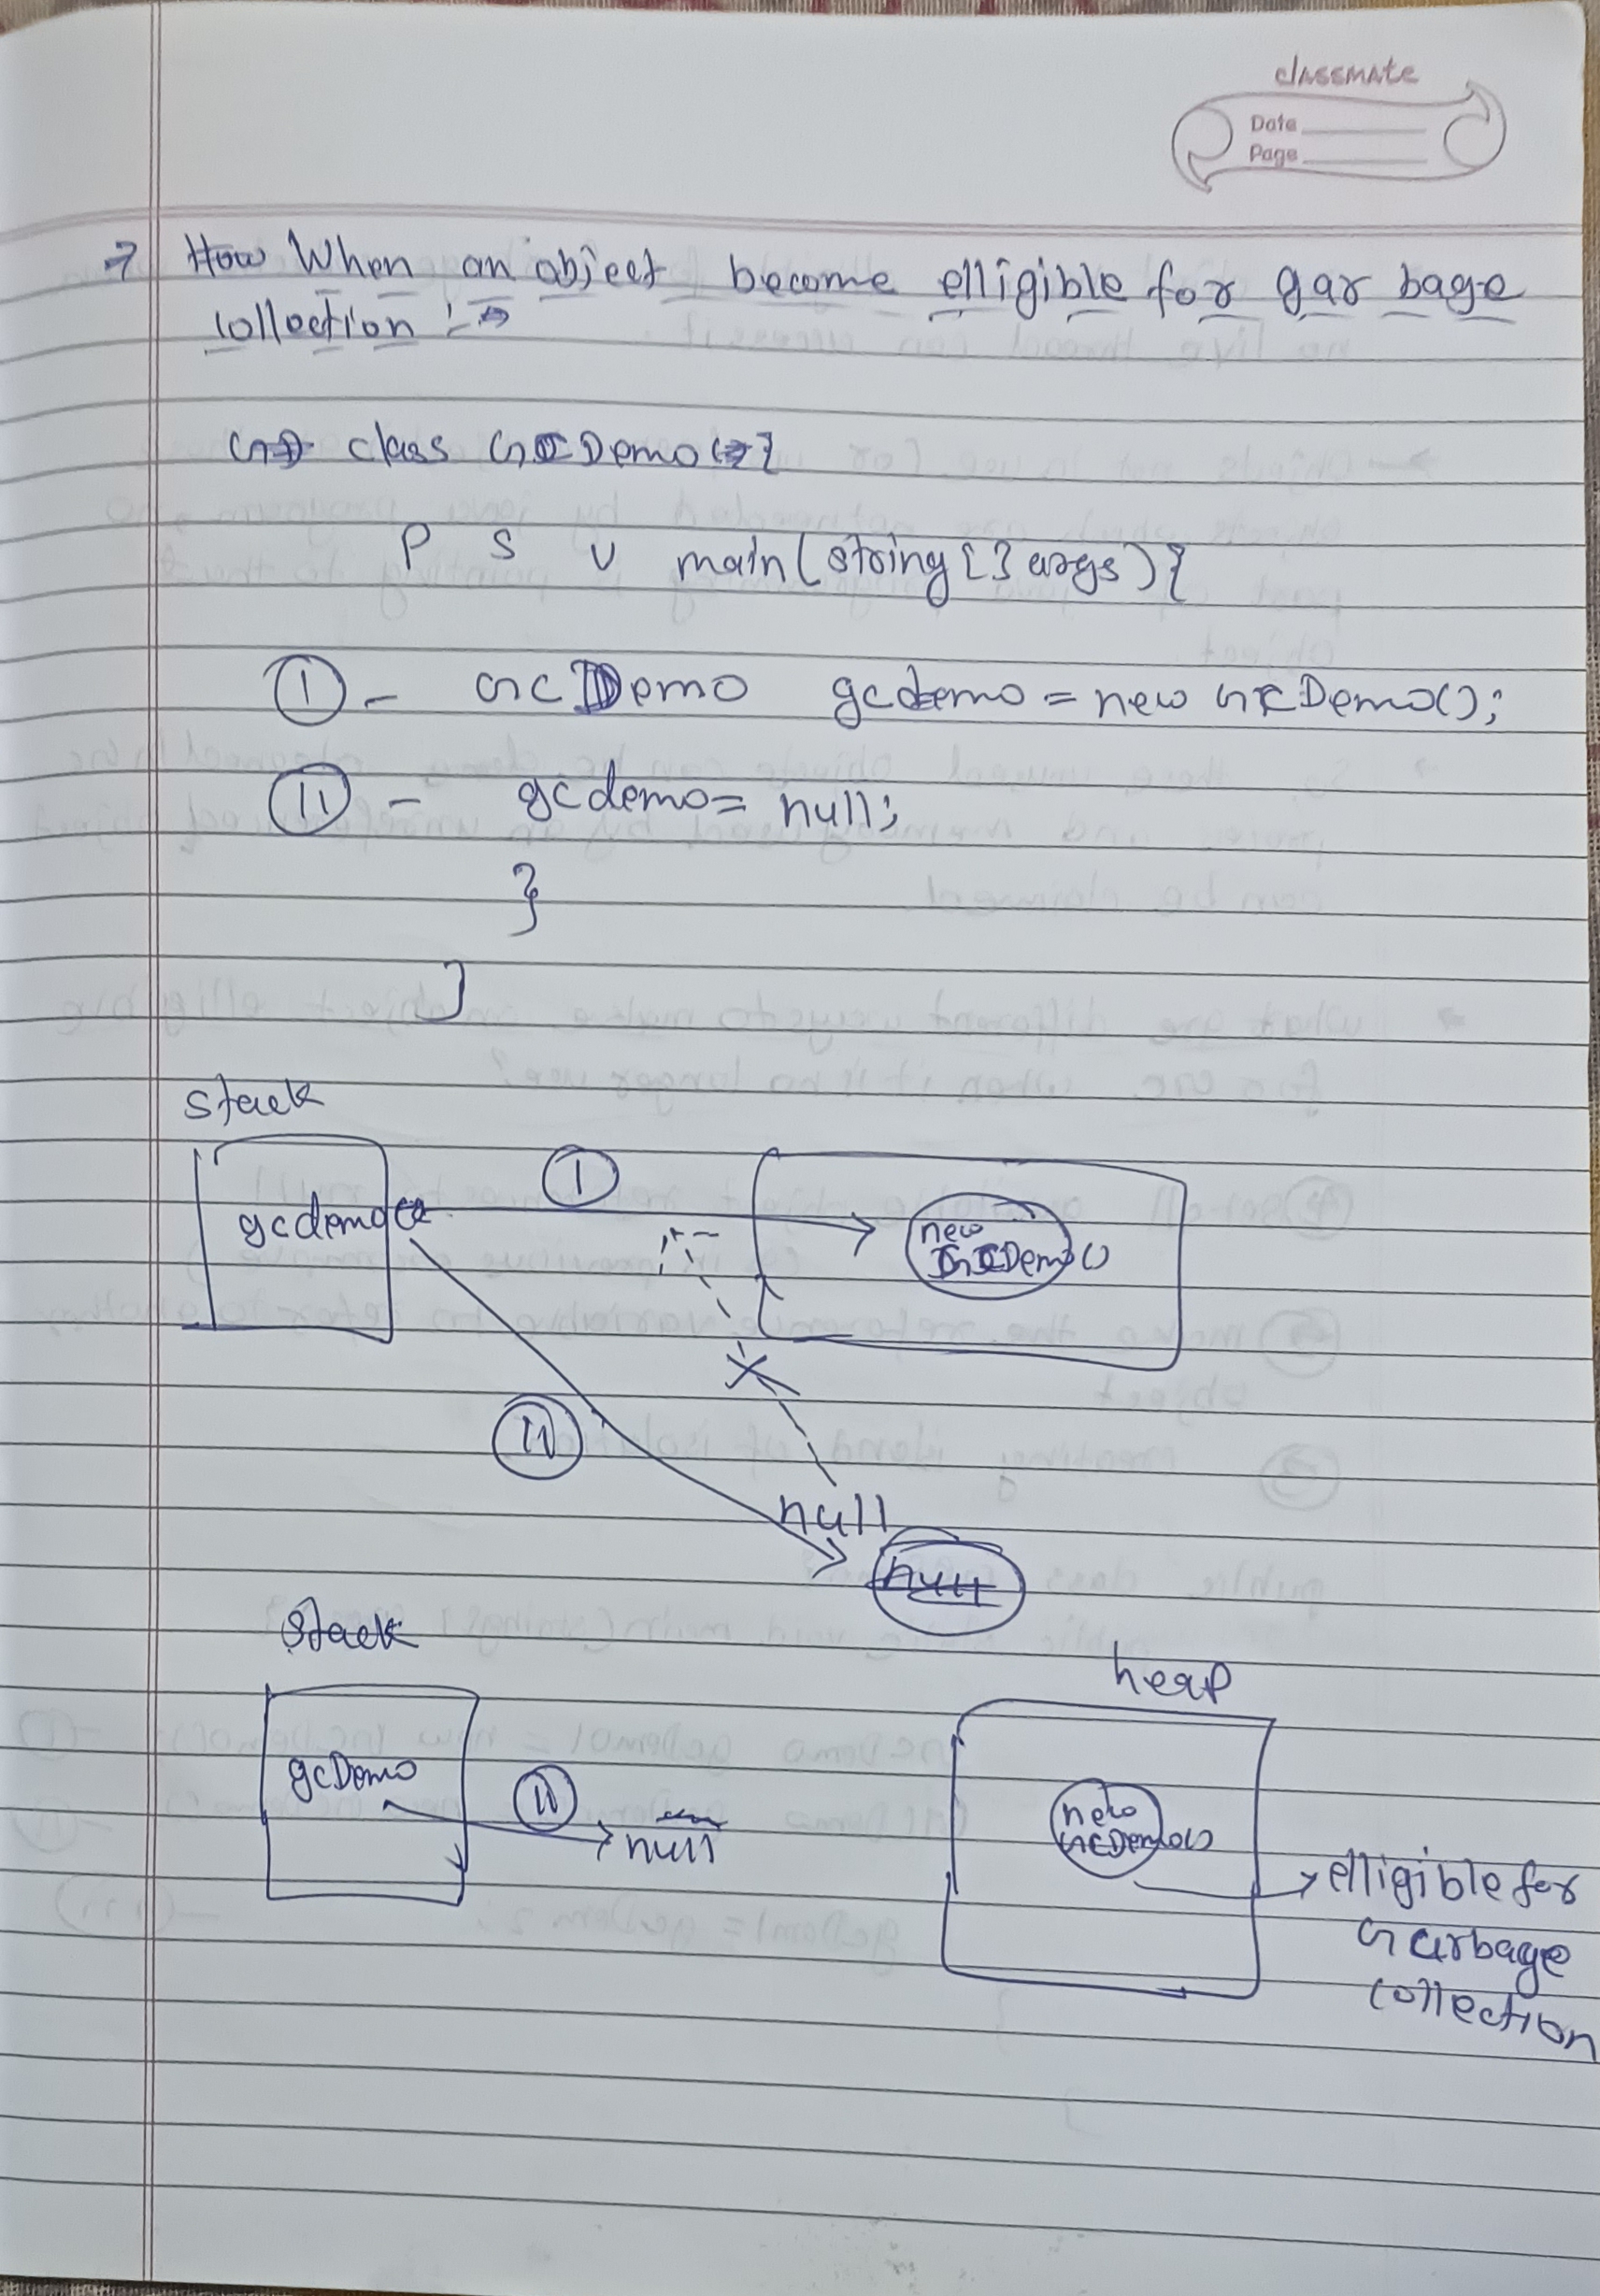 classmate
Date
Page
→ How When an object become elligible for garbage
collection :→
class GCDemo {
P S V main(string[] args){
(I) - GCDemo gcdemo = new GCDemo();
(II) - gcdemo = null;
}
}
stack
gcdemo
(I)
new
GCDemo()
(II)
null
null
stack
heap
gcDemo
(II)
null
new
GCDemo()
→ elligible for
Garbage
collection